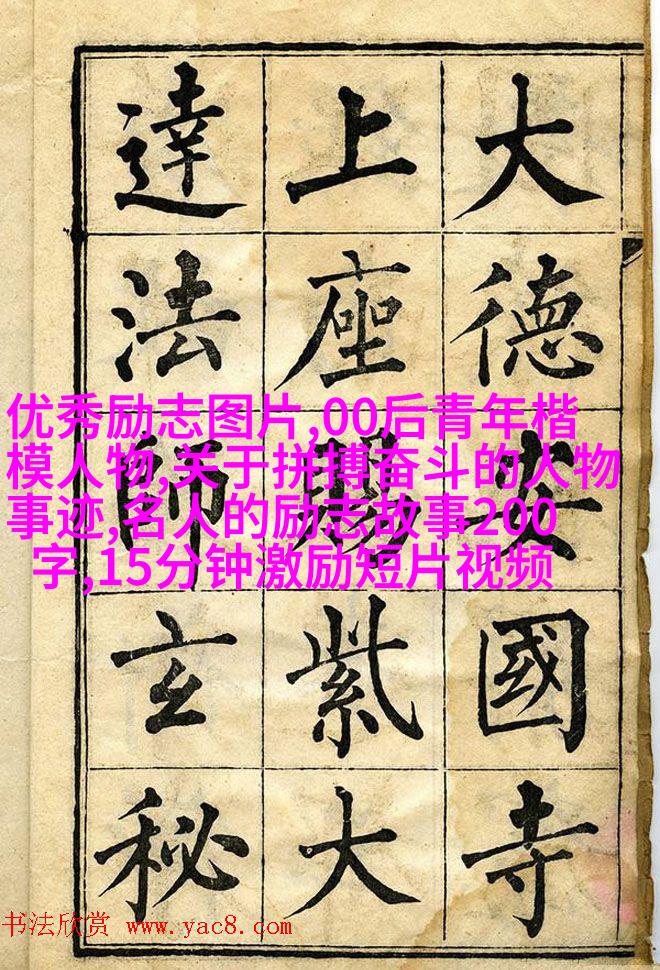 大德安國寺
上座賜紫大
達法師玄秘
优秀励志图片,00后青年楷
模人物,关于拼搏奋斗的人物
事迹,名人的励志故事200
字,15分钟激励短片视频
书法欣赏 www.yac8.com